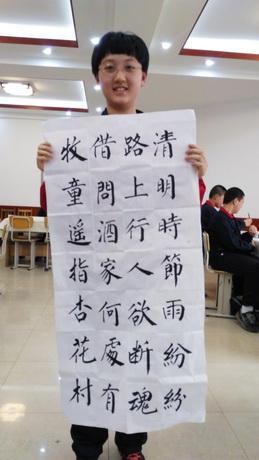 清明時節雨紛紛
路上行人欲断魂
借問酒家何處有
牧童遥指杏花村